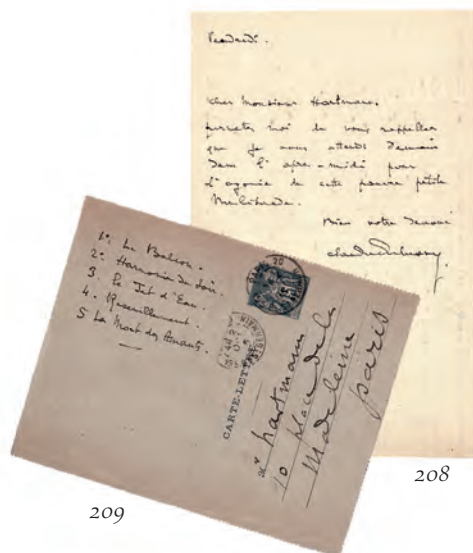 Vendredi.
Cher Monsieur Hartmann.
permettez moi de vous rappeller
que je vous attends Demain
Dans l'après-midi pour
l'agonie de cette pauvre petite
Mélisande.
Bien votre Dévoué
Claude Debussy
208
1º Le Balcon.
2º Harmonie du Soir.
3. Le Jet d'Eau.
4. Recueillement.
5 La Mort des Amants.
CARTE-LETTRE
Mr Hartmann
10 place de la
Madeleine
Paris
209